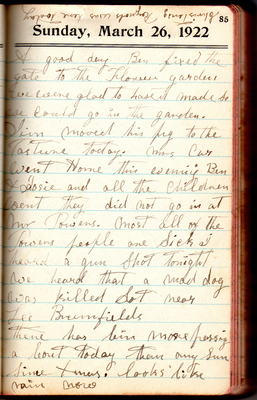 85
Sunday, March 26, 1922
A good day Ben fixed the
gate to the Flower garden
we were glad to have it made so
we could go in the garden.
Jim moved his pig to the
today. Mrs Car
went Home this evening Ben
& Josie and all the children
went they did not go in at
Mr Powens. Most all of the
Powens people are Sick I
heard a gun Shot tonight
we heard that a mad dog
was killed Sat near
Lee Brumfields
there has bin more passing
a bout today than any sun
Since Xmas. looks like
rain now